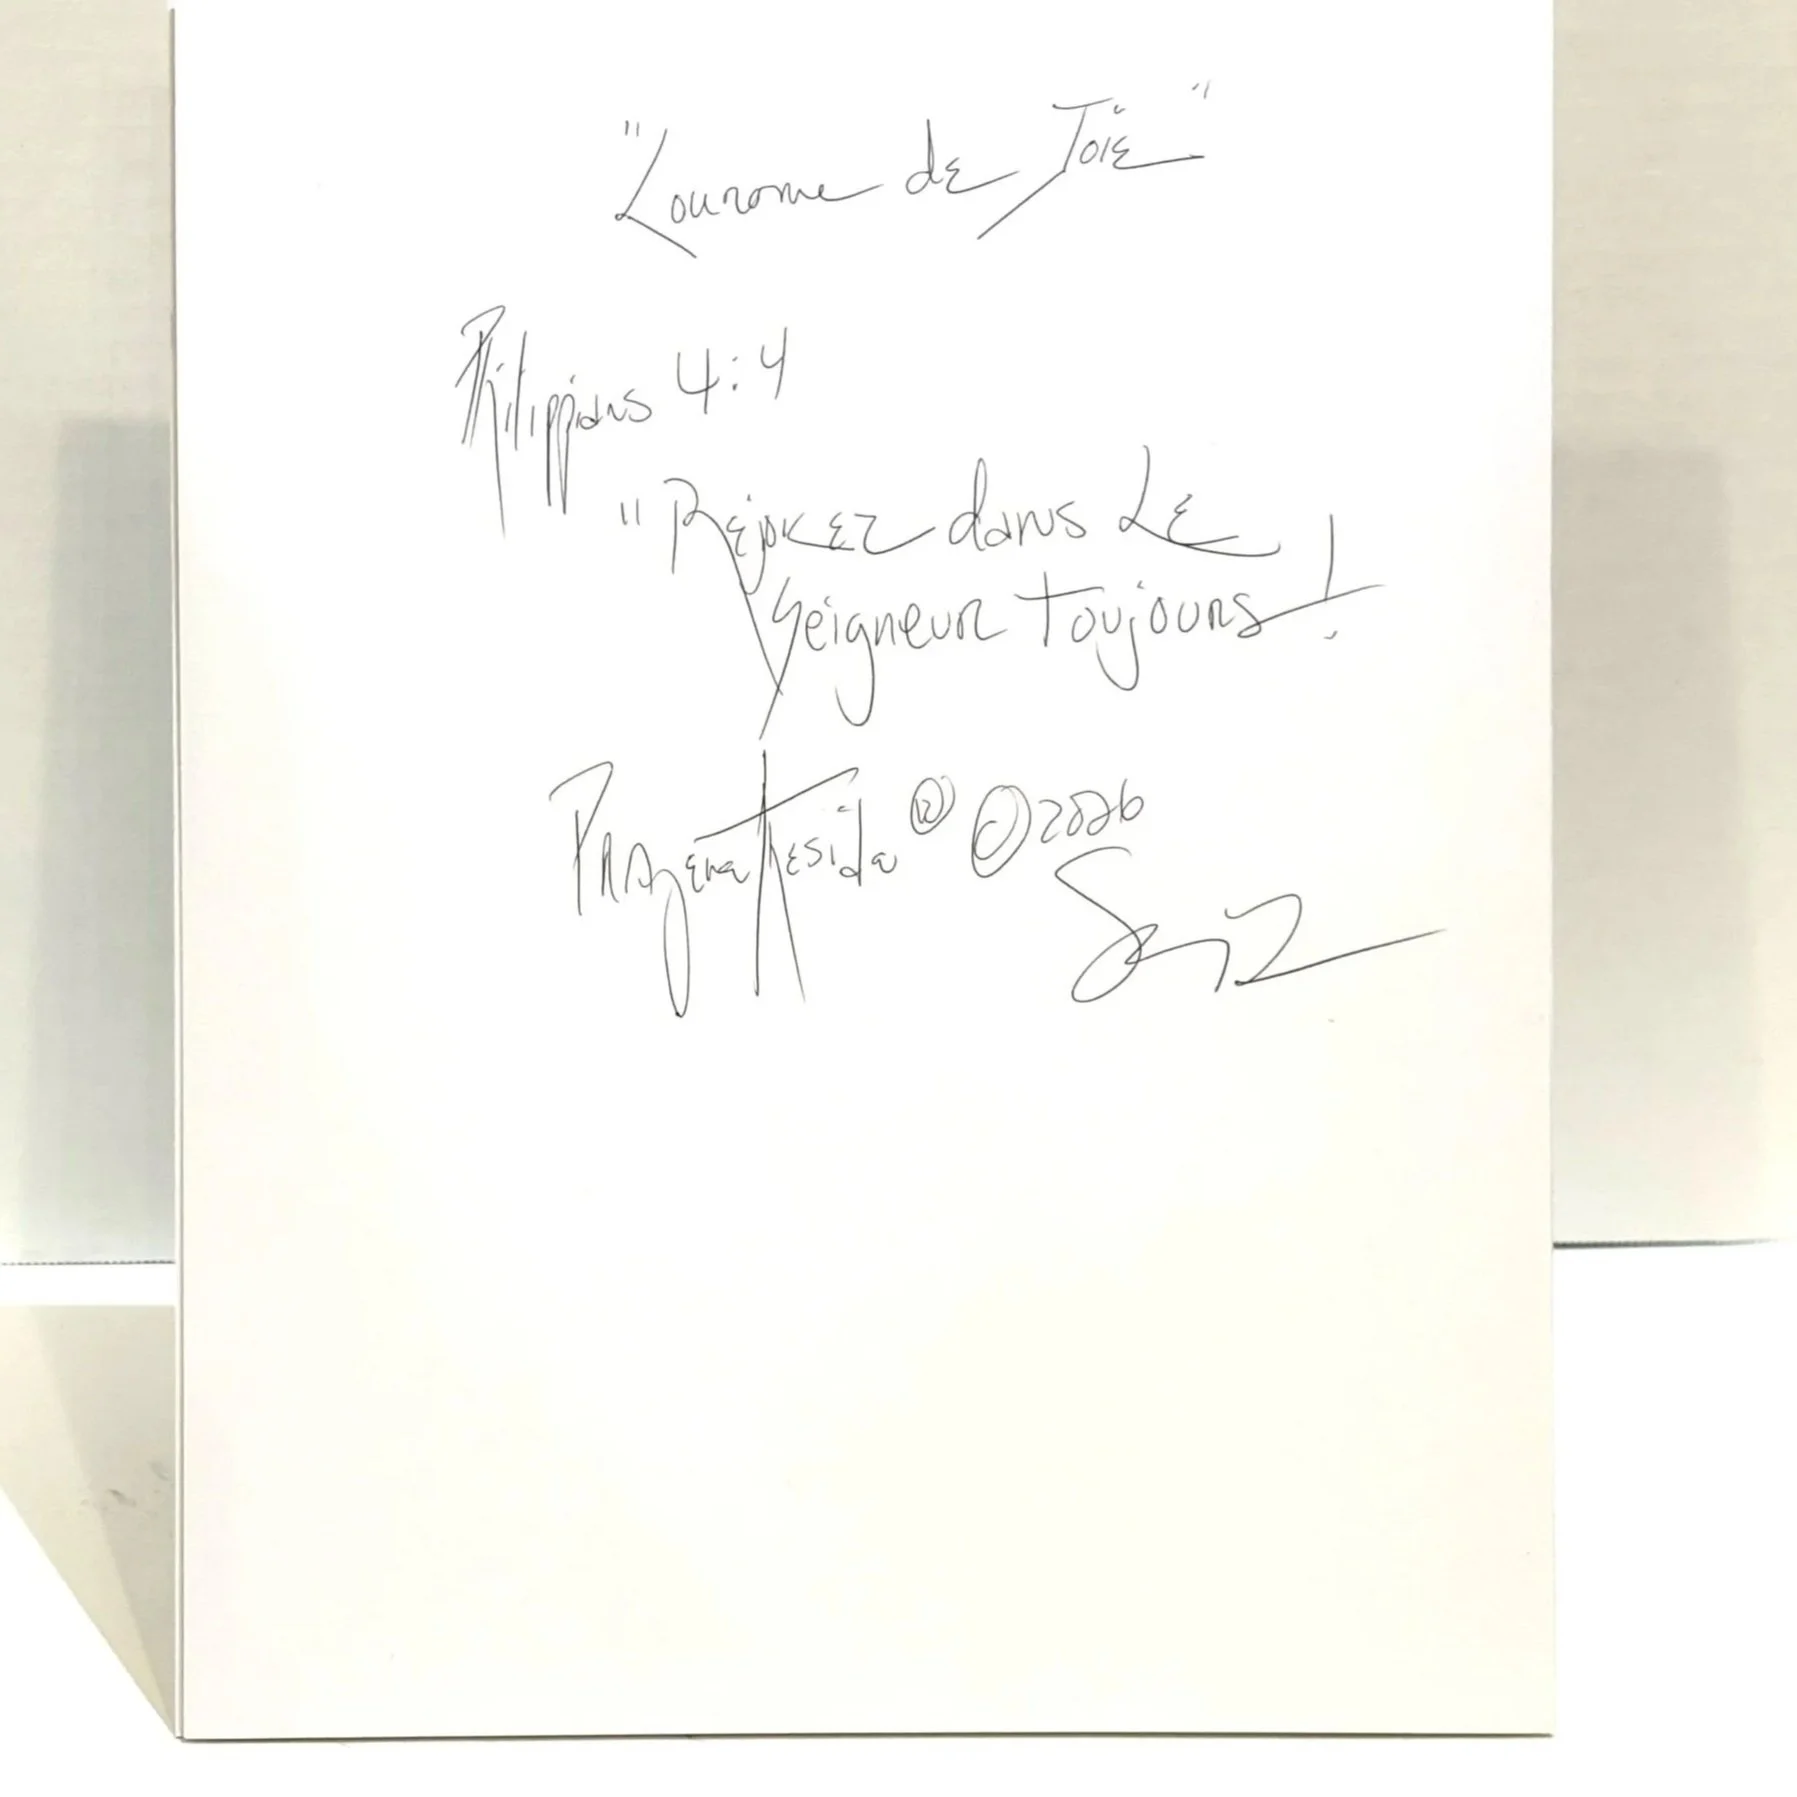 "Couronne de Joie"
Philippians 4:4
"Réjouez dans Le
Seigneur Toujours!
® ©2026